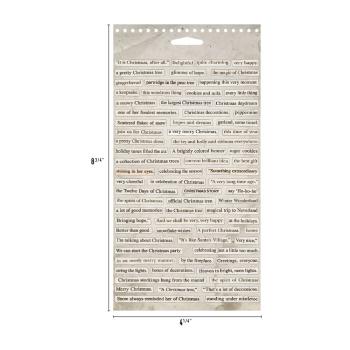 "It is Christmas, after all." Delightful quite charming very happy
a pretty Christmas tree glimmer of hope the magic of Christmas
gingerbread partridge in the pear tree happening this very moment
a keepsake this wondrous thing cookies and milk every little thing
a snowy Christmas the largest Christmas tree Christmas daydream
one of her fondest memories Christmas decorations, peppermint
Scattered flakes of snow hopes and dreams garland, some tinsel
join us for Christmas a very merry Christmas, this time of year
a pretty Christmas dress the ivy and holly and mittens everywhere
holiday tunes filled the air A brightly colored bonnet sugar cookies
a collection of Christmas trees brilliant idea the best gift
shining in her eyes. celebrating the season "Something extraordinary
very cheerful in celebration of Christmas "A very long time ago,"
the Twelve Days of Christmas CHRISTMAS STORY say 'Ho-ho-ho'
the spirit of Christmas official Christmas tree Winter Wonderland
a lot of good memories the Christmas tree magical trip to Neverland
Bringing hope," "And we shall be very, very happy in the holidays
Better than good snowflake wishes A perfect Christmas home
I'm talking about Christmas "It's like Santa's Village." Very nice,"
We can start the Christmas party celebrating just a little too much
in an overly merry manner, by the fireplace Greetings, everyone,
string the lights boxes of decorations. Heaven is bright, more lights.
Christmas stockings hung from the mantel the spirit of Christmas
Merry Christmas. "A Christmas tree," "That's a lot of decorations.
Snow always reminded her of Christmas standing under mistletoe
8 3/4"
4 1/4"